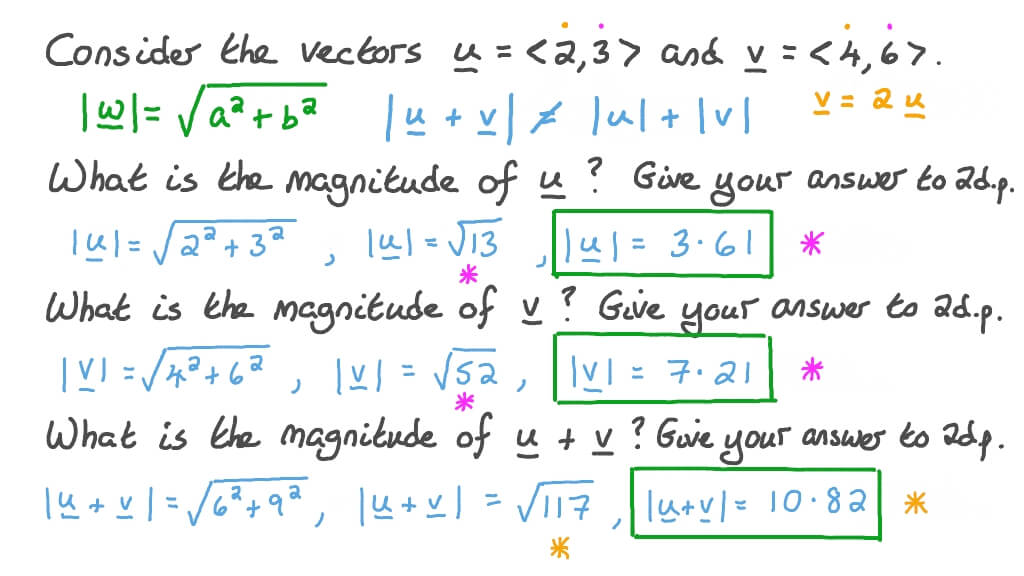 Consider the vectors u = <2,3> and v = <4,6>.
|w|= √a²+b² |u + v| ≠ |u| + |v| v = 2 u
What is the magnitude of u? Give your answer to 2d.p.
|u|= √2²+3², |u| = √13, |u| = 3·61 *
*
What is the magnitude of v? Give your answer to 2d.p.
|v| = √4²+6², |v| = √52, |v| = 7·21 *
*
What is the magnitude of u + v? Give your answer to 2d.p.
|u + v| = √6²+9², |u + v| = √117, |u+v|= 10·82 *
*